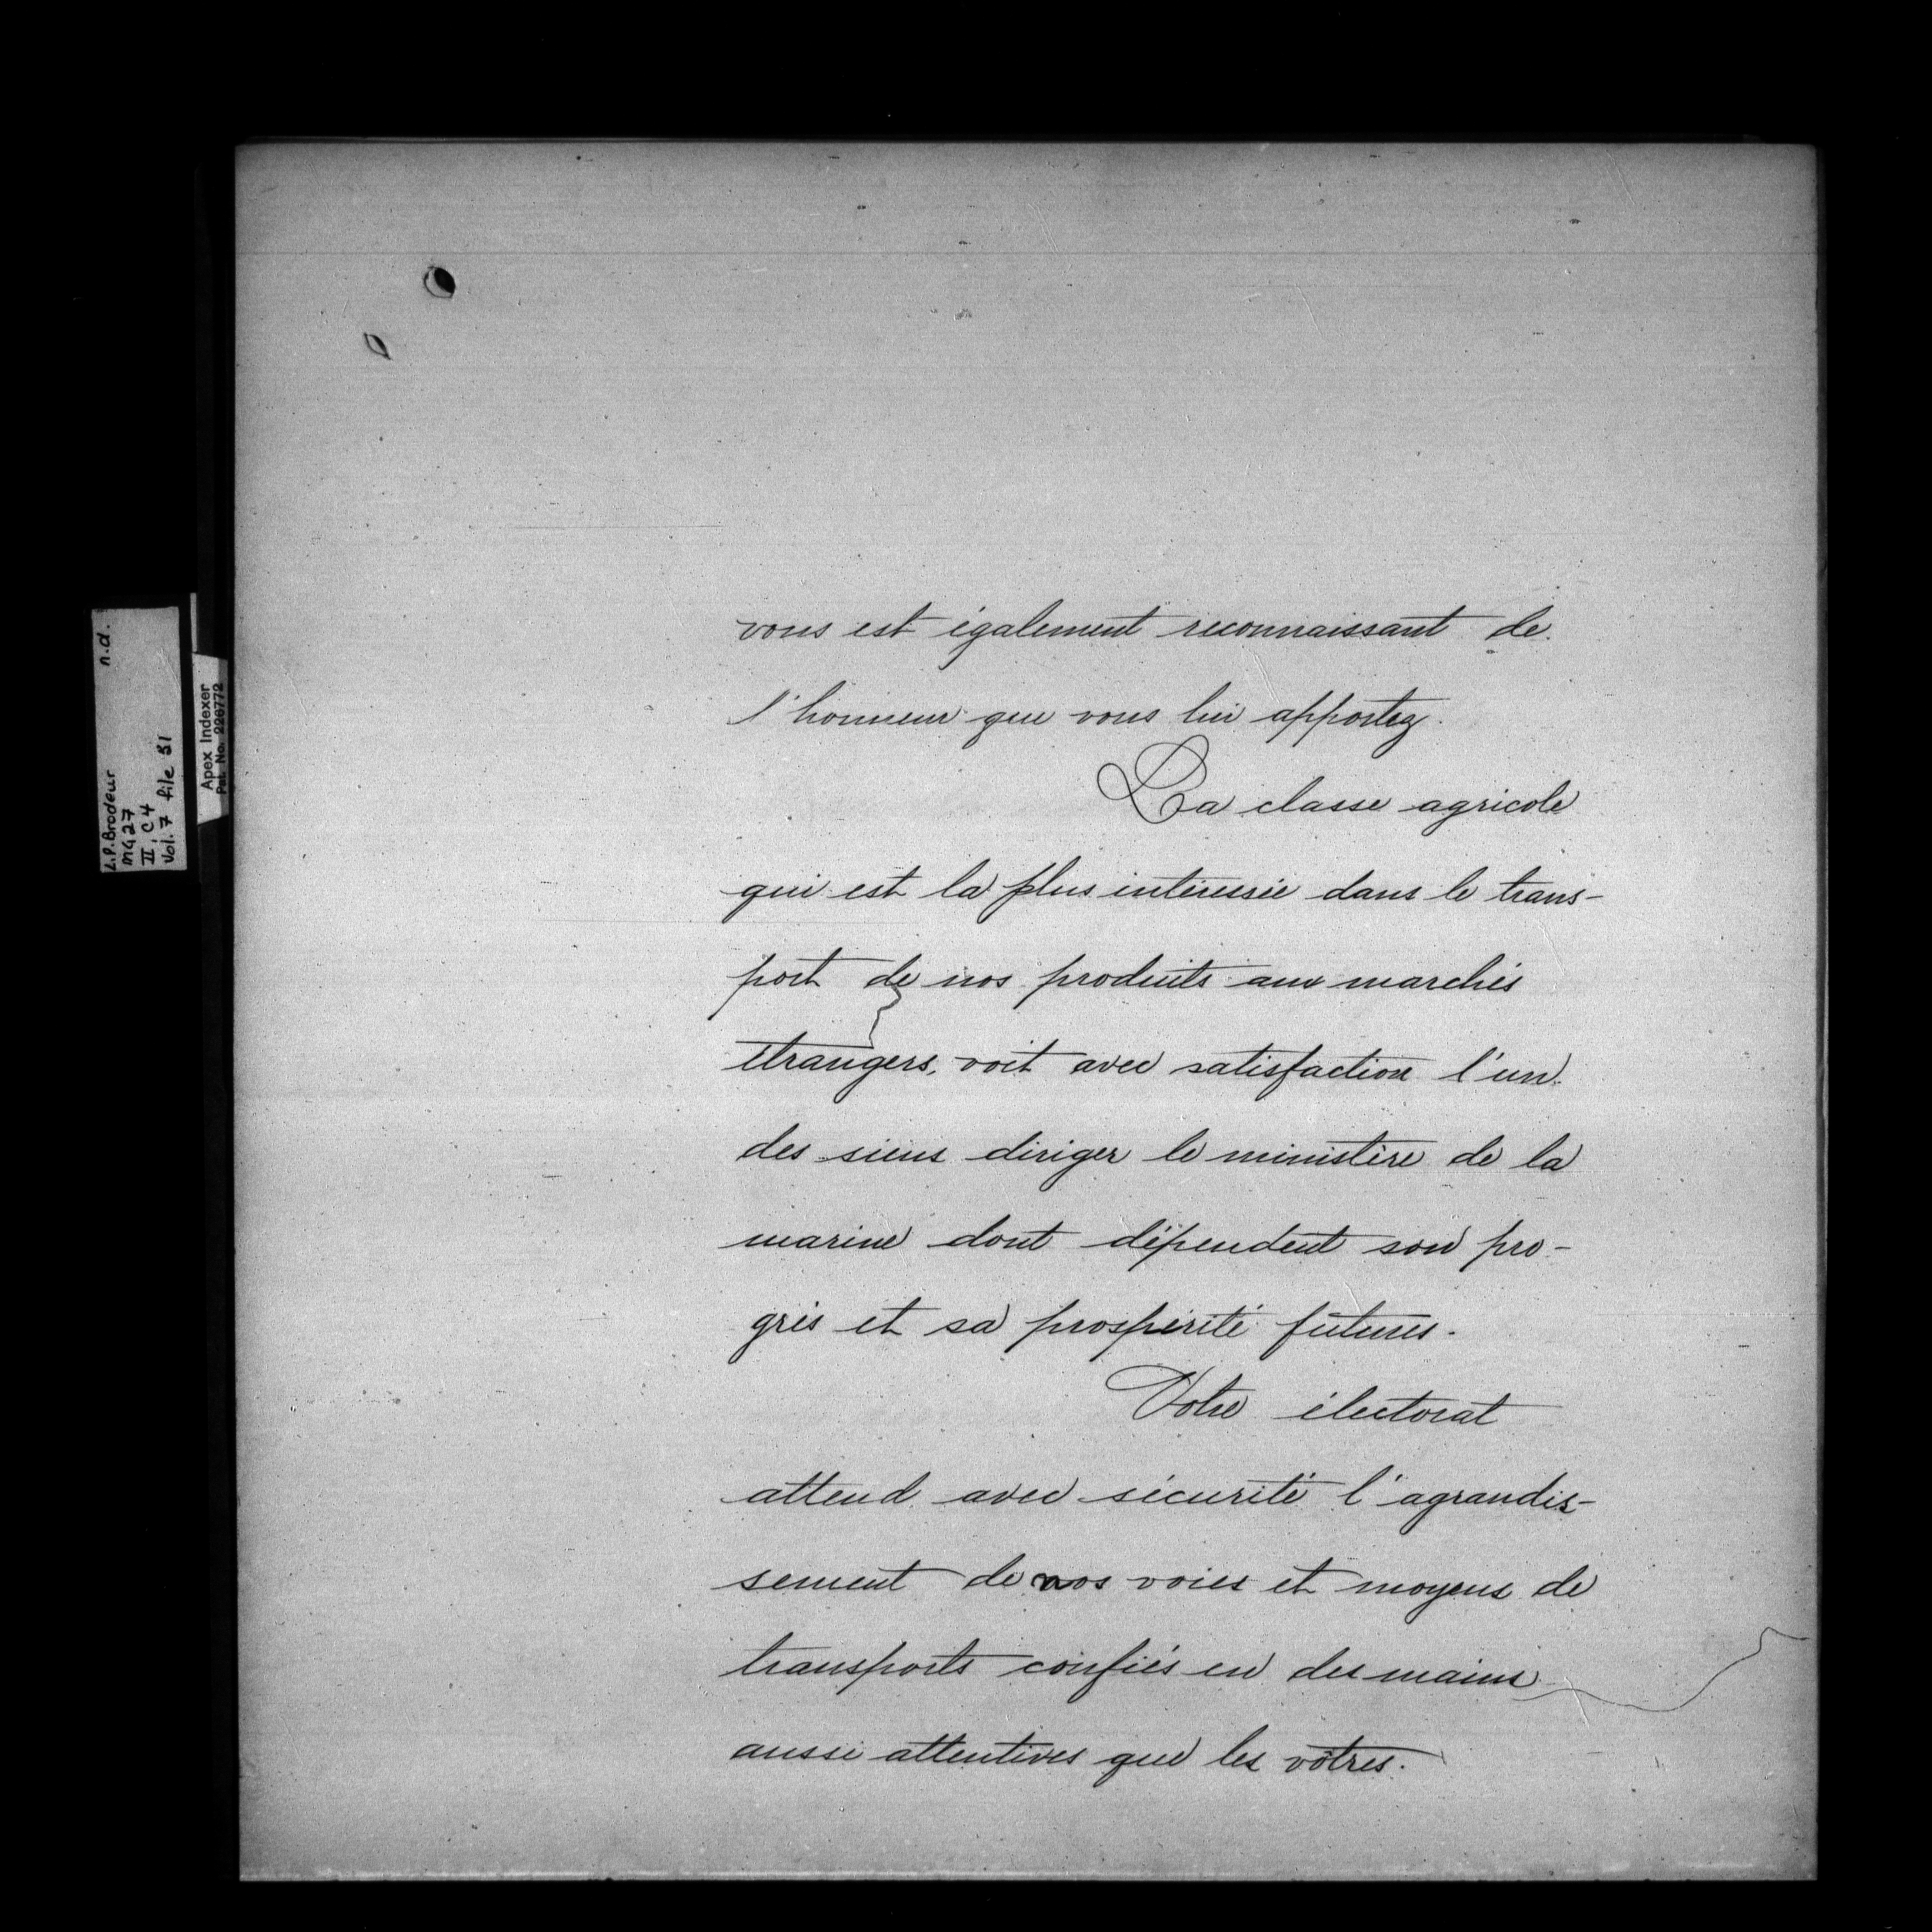 vous est également reconnaissant de
l'honneur que vous lui apportez.
La classe agricole
qui est la plus intéressée dans le trans-
port de nos produits aux marchés
étrangers, voit avec satisfaction l'un
des siens diriger le ministère de la
marine dont dépendent son pro-
grès et sa prospérité futures.
Votre électorat
attend avec sécurité l'agrandis-
sement de nos voies et moyens de
transports confiés en des mains
aussi attentives que les vôtres.
L.P. Brodeur n.d.
MG 27
II, C4
Vol. 7 file 51
Apex Indexer
Pat. No. 226772